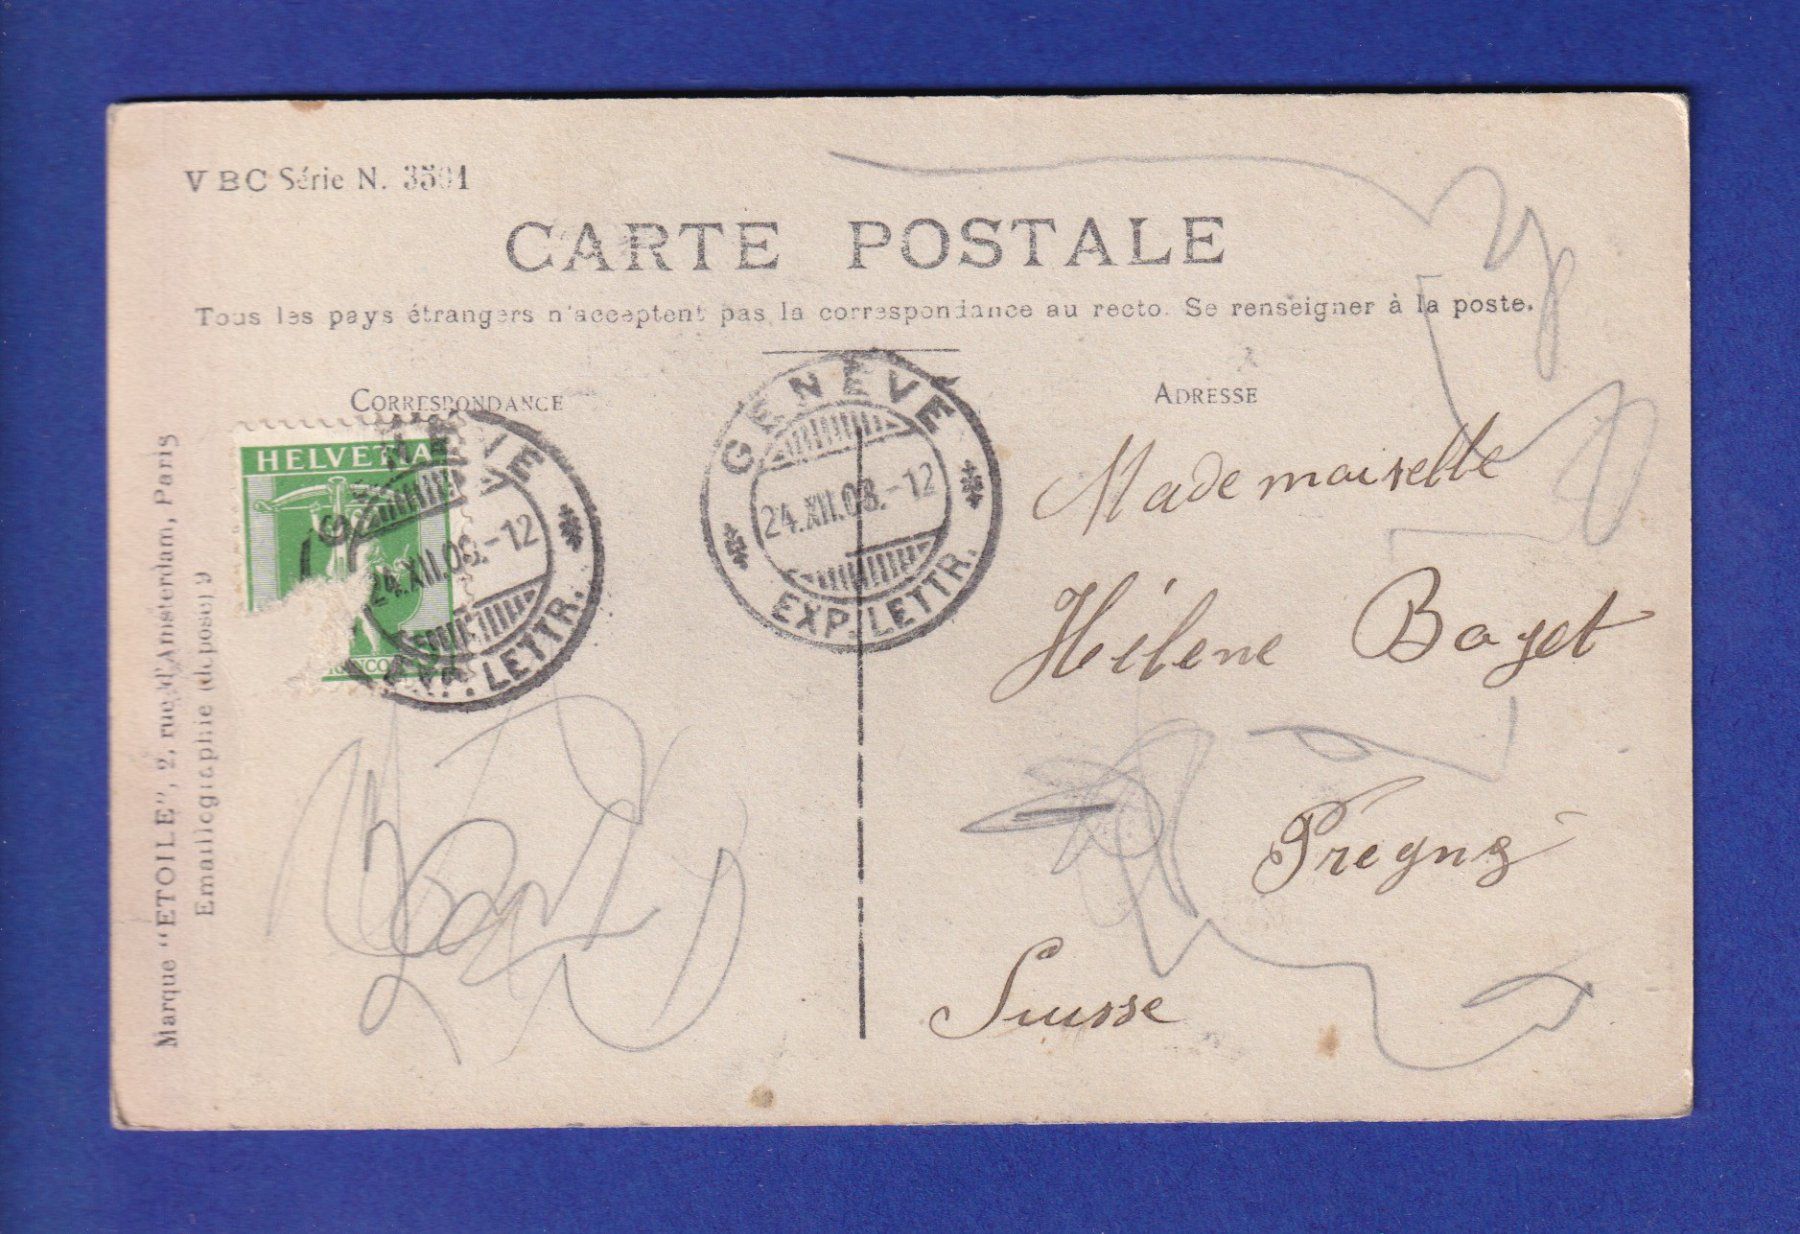 VBC Série N. 3501
CARTE POSTALE
Tous les pays étrangers n'acceptent pas la correspondance au recto. Se renseigner à la poste.
CORRESPONDANCE
ADRESSE
HELVETIA
GENÈVE
24.XII.08.-12
EXP. LETTR.
GENÈVE
24.XII.08.-12
EXP. LETTR.
Mademoiselle
Hélène Bajet
Pregny
Suisse
Marque "ETOILE", 2, rue d'Amsterdam, Paris
Emaillographie (déposé) 9